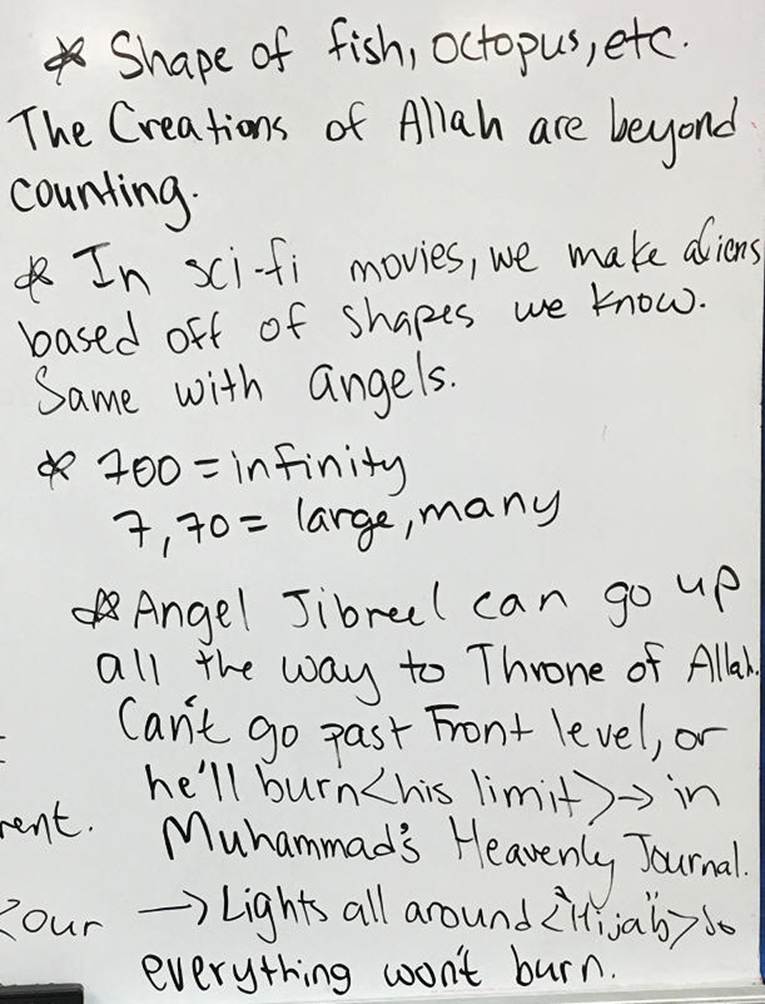 * Shape of fish, octopus, etc.
The Creations of Allah are beyond
counting.
* In sci-fi movies, we make aliens
based off of shapes we know.
Same with angels.
* 700 = infinity
7, 70 = large, many
* Angel Jibreel can go up
all the way to Throne of Allah.
Can't go past Front level, or
he'll burn <his limit> → in
rent. Muhammad's Heavenly Journal.
our → Lights all around <"Hijab"> so
everything won't burn.